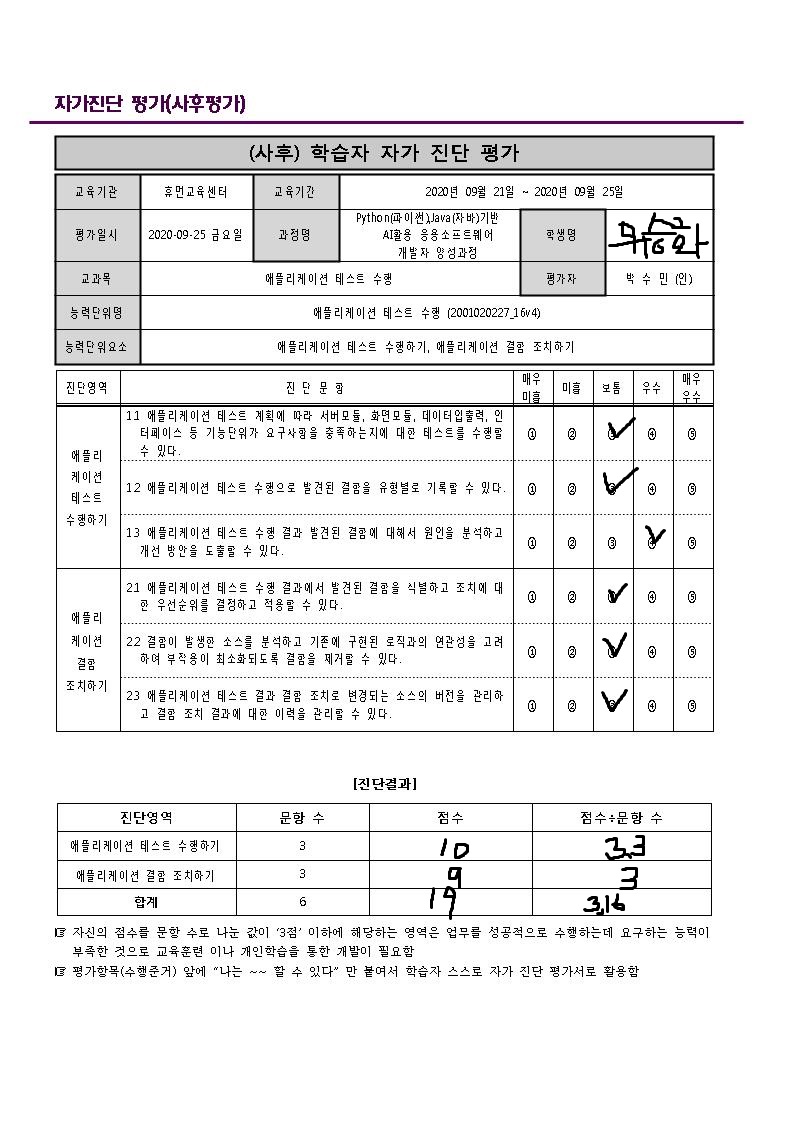 자가진단 평가(사후평가)
(사후) 학습자 자가 진단 평가
교육기관 휴먼교육센터 교육기간 2020년 09월 21일 ~ 2020년 09월 25일
평가일시 2020-09-25 금요일 과정명 Python(파이썬),Java(자바)기반 AI활용 응용소프트웨어 개발자 양성과정 학생명
교과목 애플리케이션 테스트 수행 평가자 박 수 민 (인)
능력단위명 애플리케이션 테스트 수행 (2001020227_16v4)
능력단위요소 애플리케이션 테스트 수행하기, 애플리케이션 결함 조치하기
진단영역 진 단 문 항 매우 미흡 미흡 보통 우수 매우 우수
애플리
케이션
테스트
수행하기
11 애플리케이션 테스트 계획에 따라 서버모듈, 화면모듈, 데이터입출력, 인
터페이스 등 기능단위가 요구사항을 충족하는지에 대한 테스트를 수행할
수 있다.
① ② ③ ④ ⑤
12 애플리케이션 테스트 수행으로 발견된 결함을 유형별로 기록할 수 있다.
① ② ③ ④ ⑤
13 애플리케이션 테스트 수행 결과 발견된 결함에 대해서 원인을 분석하고
개선 방안을 도출할 수 있다.
① ② ③ ④ ⑤
애플리
케이션
결함
조치하기
21 애플리케이션 테스트 수행 결과에서 발견된 결함을 식별하고 조치에 대
한 우선순위를 결정하고 적용할 수 있다.
① ② ③ ④ ⑤
22 결함이 발생한 소스를 분석하고 기존에 구현된 로직과의 연관성을 고려
하여 부작용이 최소화되도록 결함을 제거할 수 있다.
① ② ③ ④ ⑤
23 애플리케이션 테스트 결과 결함 조치로 변경되는 소스의 버전을 관리하
고 결함 조치 결과에 대한 이력을 관리할 수 있다.
① ② ③ ④ ⑤
[진단결과]
진단영역 문항 수 점수 점수÷문항 수
애플리케이션 테스트 수행하기 3 10 3.3
애플리케이션 결함 조치하기 3 9 3
합계 6 19 3.16
☞ 자신의 점수를 문항 수로 나눈 값이 ‘3점’ 이하에 해당하는 영역은 업무를 성공적으로 수행하는데 요구하는 능력이
부족한 것으로 교육훈련 이나 개인학습을 통한 개발이 필요함
☞ 평가항목(수행준거) 앞에 “나는 ~~ 할 수 있다” 만 붙여서 학습자 스스로 자가 진단 평가서로 활용함